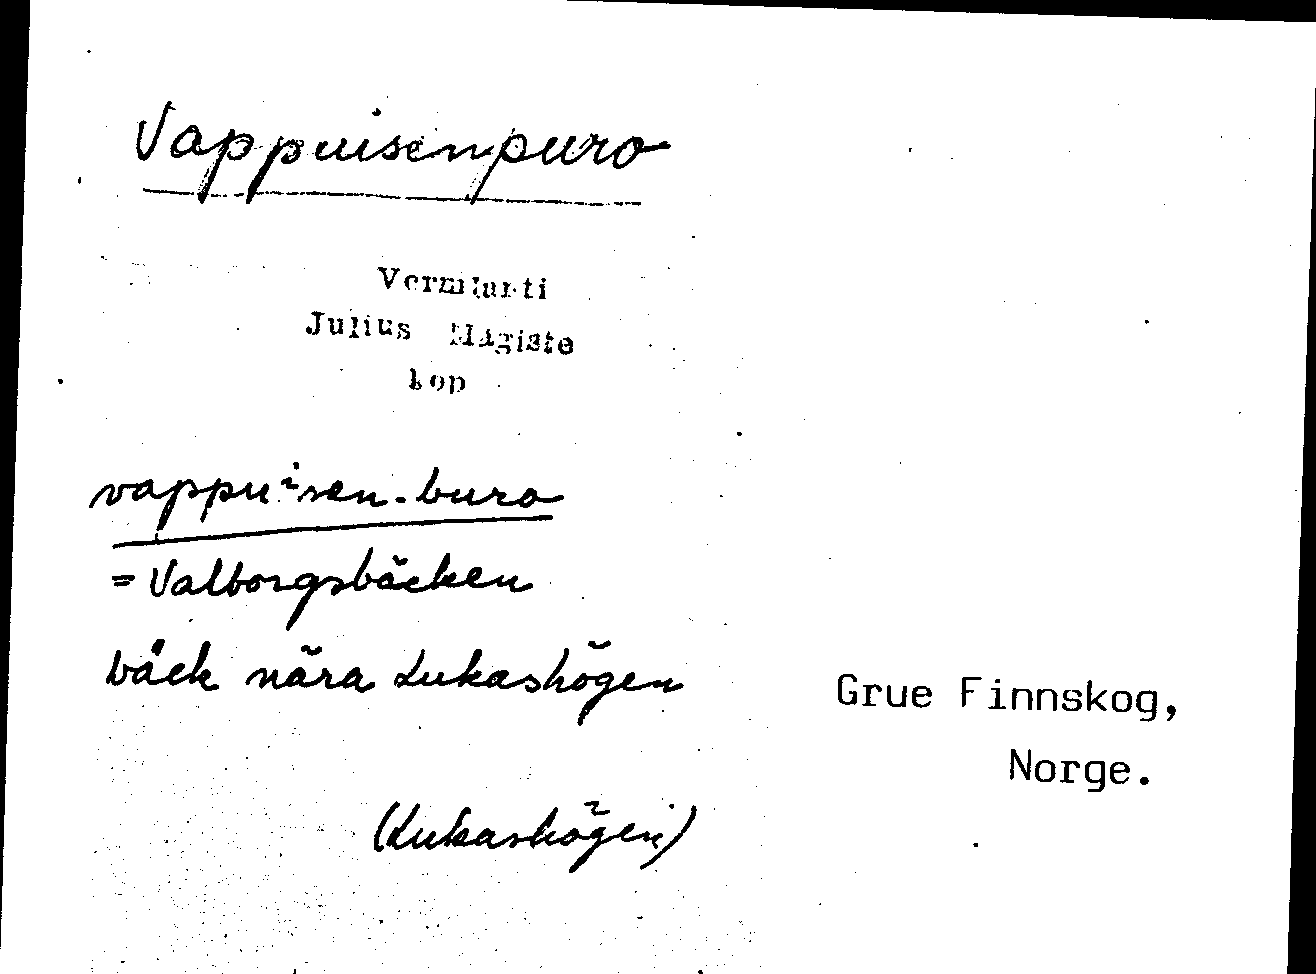 Vappuisenpuro
Vermlanti
Julius Mägiste
kop
vappuisen-buro
= Valborgsbäcken
bäck nära Lukashögen
Grue Finnskog,
Norge.
(Lukashögen)